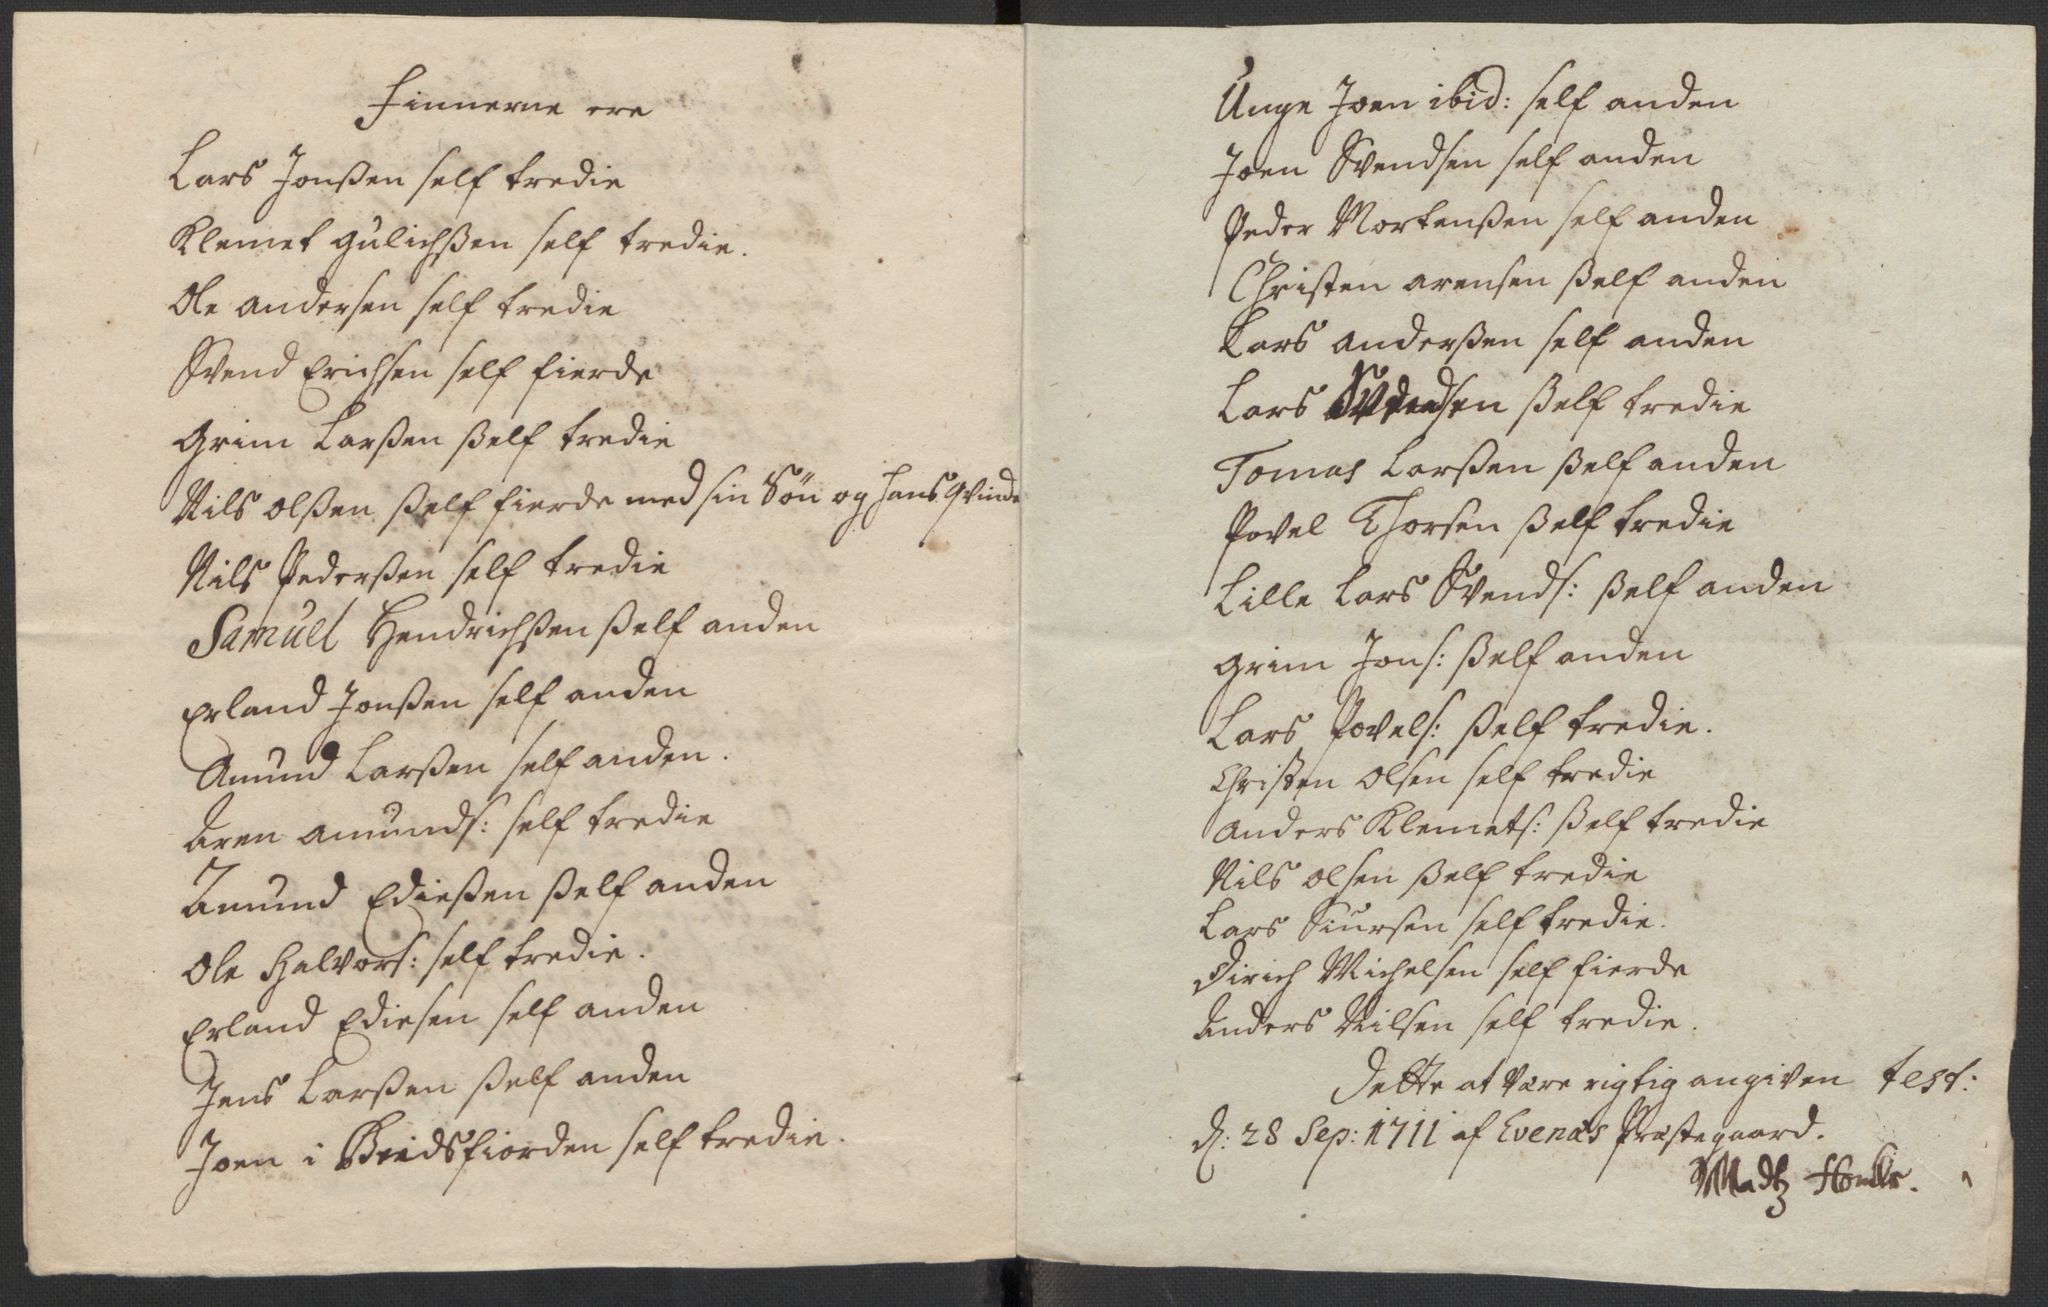 Finnerne ere
Lars Jonßen self tredie
Klemet Gulichßen self tredie.
Ole Andersen self tredie
Svend Erichsen self fierde
Grim Larßen ßelf tredie
Nils Olßen ßelf fierde med sin Sön og hans Qvinde
Nils Pederßen self tredie
Samuel Hendrichßen ßelf anden
Erland Jonßen self anden
Amund Larßen self anden.
Aren Amunds: self tredie
Amund Edießen ßelf anden
Ole Halvors: self tredie.
Erland Ediesen self anden
Jens Larßen ßelf anden
Joen i Beidsfiorden self tredie.
Unge Joen ibid: self anden
Joen Svendsen self anden
Peder Mortenßen self anden
Christen Arensen ßelf anden
Lars Anderßen self anden
Lars Svendsen ßelf tredie
Tomas Larßen ßelf anden
Povel Thorsen ßelf tredie
Lille Lars Svends: ßelf anden
Grim Jons: ßelf anden
Lars Povels: ßelf tredie.
Christen Olsen self tredie
Anders Klemets: ßelf tredie
Nils Olsen ßelf tredie
Lars Siursen self tredie.
Dirich Michelsen self fierde
Anders Nilsen self tredie.
Dette at være rigtig angiven test:
d: 28 Sep: 1711 af Evenæs Præstegaard.
Madtz